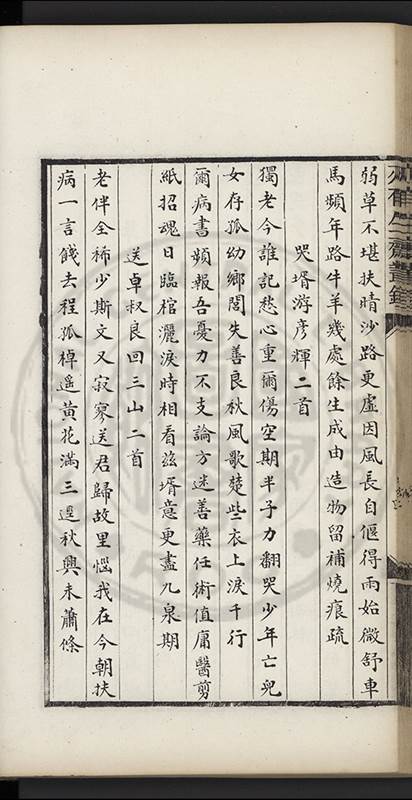 弱草不堪扶晴沙路更虛因風長自偃得雨始微舒車
馬頻年路牛羊幾處餘生成由造物留補燒痕疏
哭壻游彥輝二首
獨老今誰記愁心重爾傷空期半子力翻哭少年亡兒
女存孤幼鄉閭失善良秋風歌楚些衣上淚千行
爾病書頻報吾憂力不支論方迷善藥任術值庸醫剪
紙招魂日臨棺灑淚時相看玆壻意更盡九泉期
送卓叔良回三山二首
老伴全稀少斯文又寂寥送君歸故里惱我在今朝扶
病一言餞去程孤棹遥黃花滿三逕秋興未蕭條